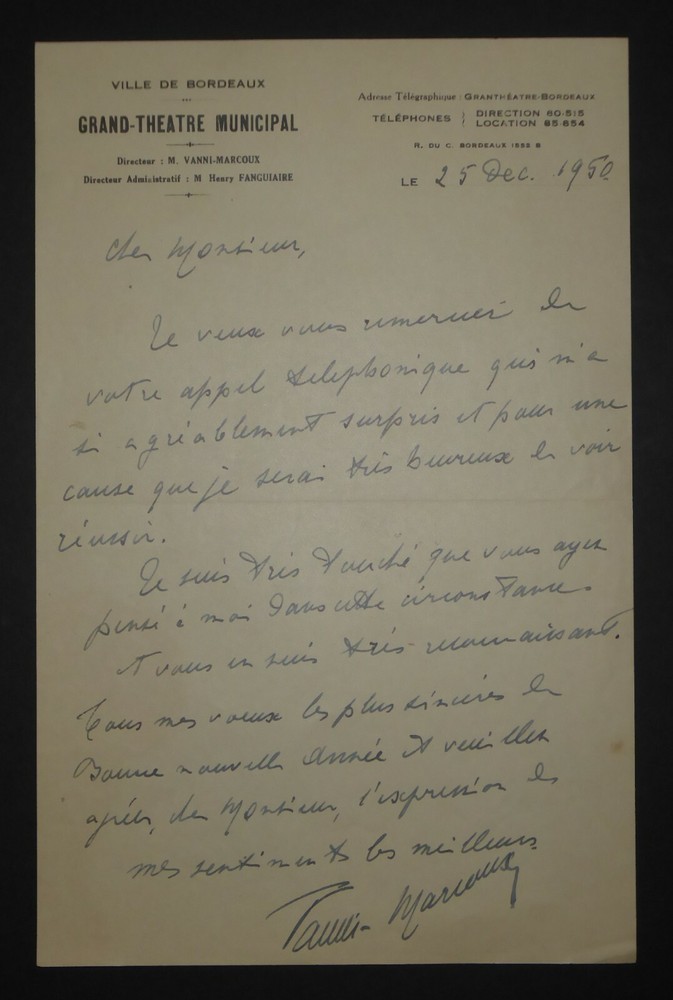 VILLE DE BORDEAUX
GRAND-THEATRE MUNICIPAL
Directeur : M. VANNI-MARCOUX
Directeur Administratif : M Henry FANGUIAIRE
Adresse Télégraphique : GRANTHÉATRE-BORDEAUX
TÉLÉPHONES } DIRECTION 60-515
LOCATION 85-654
R. DU C. BORDEAUX 1552 B
LE 25 Dec. 1950
Cher Monsieur,
Je veux vous remercier de
votre appel telephonique qui m'a
si agréablement surpris et pour une
cause que je serai très heureux de voir
réussir.
Je suis très touché que vous ayez
pensé à moi dans cette circonstance
et vous en suis très reconnaissant.
Tous mes voeux les plus sincères de
Bonne nouvelle Année et veuillez
agréer, cher Monsieur, l'expression de
mes sentiments les meilleurs.
Vanni-Marcoux